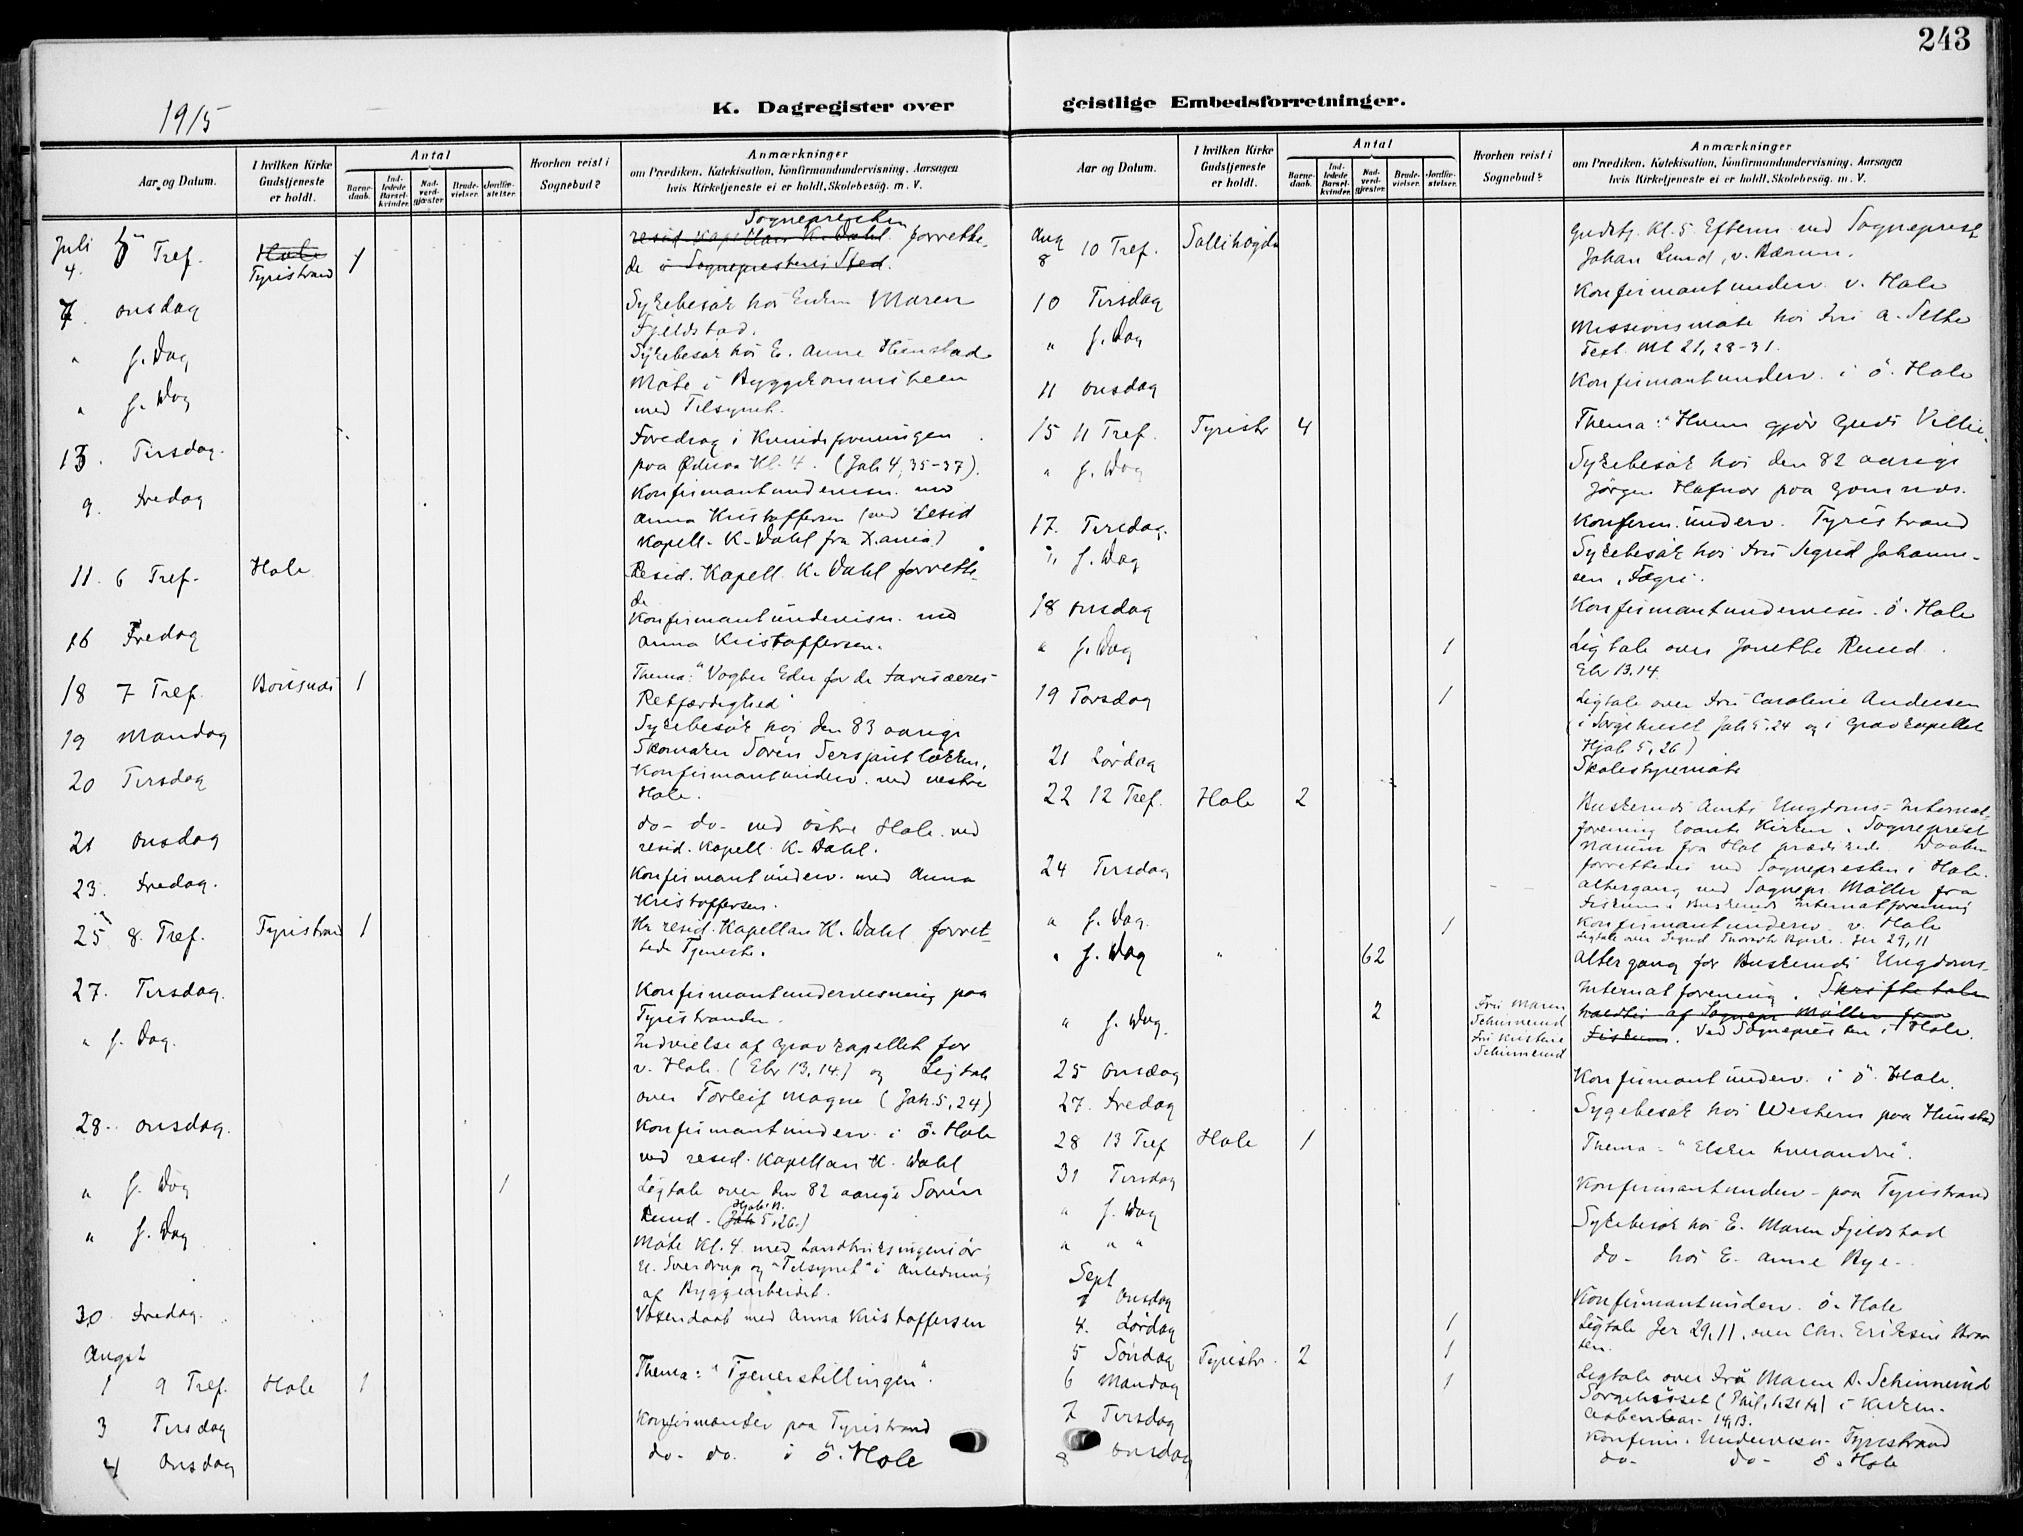 243
1915
K. Dagregister over geistlige Embedsforretninger.
Aar og Datum.
I hvilken Kirke Gudstjeneste er holdt.
Antal
Barne-daab.
Ind-ledede Barsel-kvinder.
Nad-verd-gjæster.
Brude-vielser.
Jordfæ-stelser.
Hvorhen reist i Sognebud?
Anmærkninger
om Prædiken, Katekisation, Konfirmandundervisning, Aarsagen
hvis Kirketjeneste ei er holdt, Skolebesøg. m. V.
Juli
4. 5 Tref. Hole Tyristrand 1 resid. Kapellan K. Dahl Sognepresten forrette-
de i Sogneprestens Sted.
7. onsdag Sykebesøk hos Enken Maren
Fjeldstad.
" s. Dag Sykebesøk hos E. Anne Hunstad
" s. Dag Møte i Byggekommisteen
med Tilsynet.
13. Tirsdag. Foredrag i Kvindeforeningen
paa Øderaa Kl. 4. (Joh 4, 35-37).
9. Fredag Konfirmantundervisn. med
Anna Kristoffersen (ved Resid
Kapell. K. Dahl fra X.ania)
11. 6 Tref. Hole Resid. Kapell. K. Dahl forrette-
de
16 Fredag Konfirmantundervisn. med
Anna Kristoffersen.
18 7 Tref. Bønsnes 1 Thema: "Vogter Eder for de farisæeres
Retfærdighed"
19 Mandag Sykebesøk hos den 83 aarige
Skomaker Søren Sersjantløkken.
20 Tirsdag Konfirmantunderv. ved vestre
Hole.
21 onsdag do- do- ved østre Hole ved
resid. Kapell. K. Dahl.
23. Fredag. Konfirmantunderv. med Anna
Kristoffersen.
25 8. Tref. Tyristrand 1 Hr resid. Kapellan K. Dahl forret-
tede Tjeneste.
27. Tirsdag. Konfirmantundervisning paa
Tyristranden.
" s. Dag. Indvielse af Gravkapellet for
v. Hole. (Ebr 13,14.) og Ligtale
over Torleif Magne (Joh. 5,24)
28. onsdag. Konfirmantunderv. i ø. Hole
ved resid. Kapellan K. Dahl
" s. Dag 1 Ligtale over den 82 aarige Søren
Rund. (Joh Hjob. 5,26.)
" s. Dag Møte Kl. 4 med Landbruksingeniør
U. Sverdrup og "Tilsynet" i Anledning
af Byggearbeidet.
30 Fredag. Voxendaab med Anna Kristoffersen
August
1 9 Tref. Hole 1 Thema: "Tjenerstillingen".
3 Tirsdag Konfirmanter paa Tyristrand
4 Onsdag do- do. i ø. Hole
Aar og Datum.
I hvilken Kirke Gudstjeneste er holdt.
Antal
Barne-daab.
Ind-ledede Barsel-kvinder.
Nad-verd-gjæster.
Brude-vielser.
Jordfæ-stelser.
Hvorhen reist i Sognebud?
Anmærkninger
om Prædiken, Katekisation, Konfirmandundervisning, Aarsagen
hvis Kirketjeneste ei er holdt, Skolebesøg. m. V.
Aug
8 10 Tref. Sollihøgda Gudstj. Kl. 5 Efterm. ved Sogneprest
Johan Lund, v. Bærum.
10 Tirsdag Konfirmantunderv. v. Hole
" s. Dag Missionsmøte hos Fru A.
Text. Mt 21,28-31.
11 onsdag Konfirmantunderv. i ø. Hole
15 11 Tref. Tyristr 4 Thema: "Hvem gjør Guds Villie.
" s. Dag Sykebesøk hos den 82 aarige
Jørgen Hafnor paa Gomnes.
17. Tirsdag. Konferm. underv. Tyristrand
" s. Dag Sykebesøk hos Fru Sigrid Johanne-
sen, Fagri.
18 onsdag Konfirmantundervisn. ø. Hole
" s. Dag 1 Ligtale over Jonette Rund.
Ebr 13.14.
19 Torsdag 1 Ligtale over Fru Caroline Andersen
(i Sørgehuset Joh 5.24 og i Gravkapellet
Hjob 5,26)
21 Lørdag Skolestyremøte
22 12 Tref. Hole 2 Buskeruds Amts Ungdoms-Internat-
forening laante Kirken. Sogneprest
fra Hol prædikede. Daaben
forrettedes ved Sognepresten i Hole.
Altergang ved Sognepr. Møller fra
Fiskum i Buskeruds Internatforening
24 Tirsdag Konfirmantunderv. v. Hole
" s. Dag. 1 Ligtale over Sigrid Bjerke. Jer 29,11
" s. Dag " 62 Altergang for Buskeruds Ungdoms-
Internatforening. Skriftetalen
holdtes af Sognepr. Møller fra
Fiskum. Ved Sognepresten i Hole.
" s. Dag. 2 Fru Maren Schinnerud Fru Kristine Schinnerud
25 onsdag Konfirmantunderv. i ø. Hole.
27. Fredag Sygebesøk hos Western paa Hunstad
28 13 Tref Hole 1 Thema: "Elsker hverandre".
31 Tirsdag Konfirmantunderv- paa Tyristrand
" s. Dag Sykebesøk hos E. Maren Fjeldstad
" " " do- hos E. Anne Bye-
Sept
1 Onsdag Konfirmantunderv. ø. Hole
4. Lørdag 1 Ligtale Jer 29,11. over Chr. Eriksen
5 Søndag Tyristr. 2 1
6 Mandag 1 Ligtale over Fru Maren A. Schinnerud
Sørgehuset (Phil. 1.21) i Kirken.
Aabenbar. 14,13.
7 Tirsdag Konfirm. Undervisn- Tyristrand
8 onsdag do- do- ø. Hole